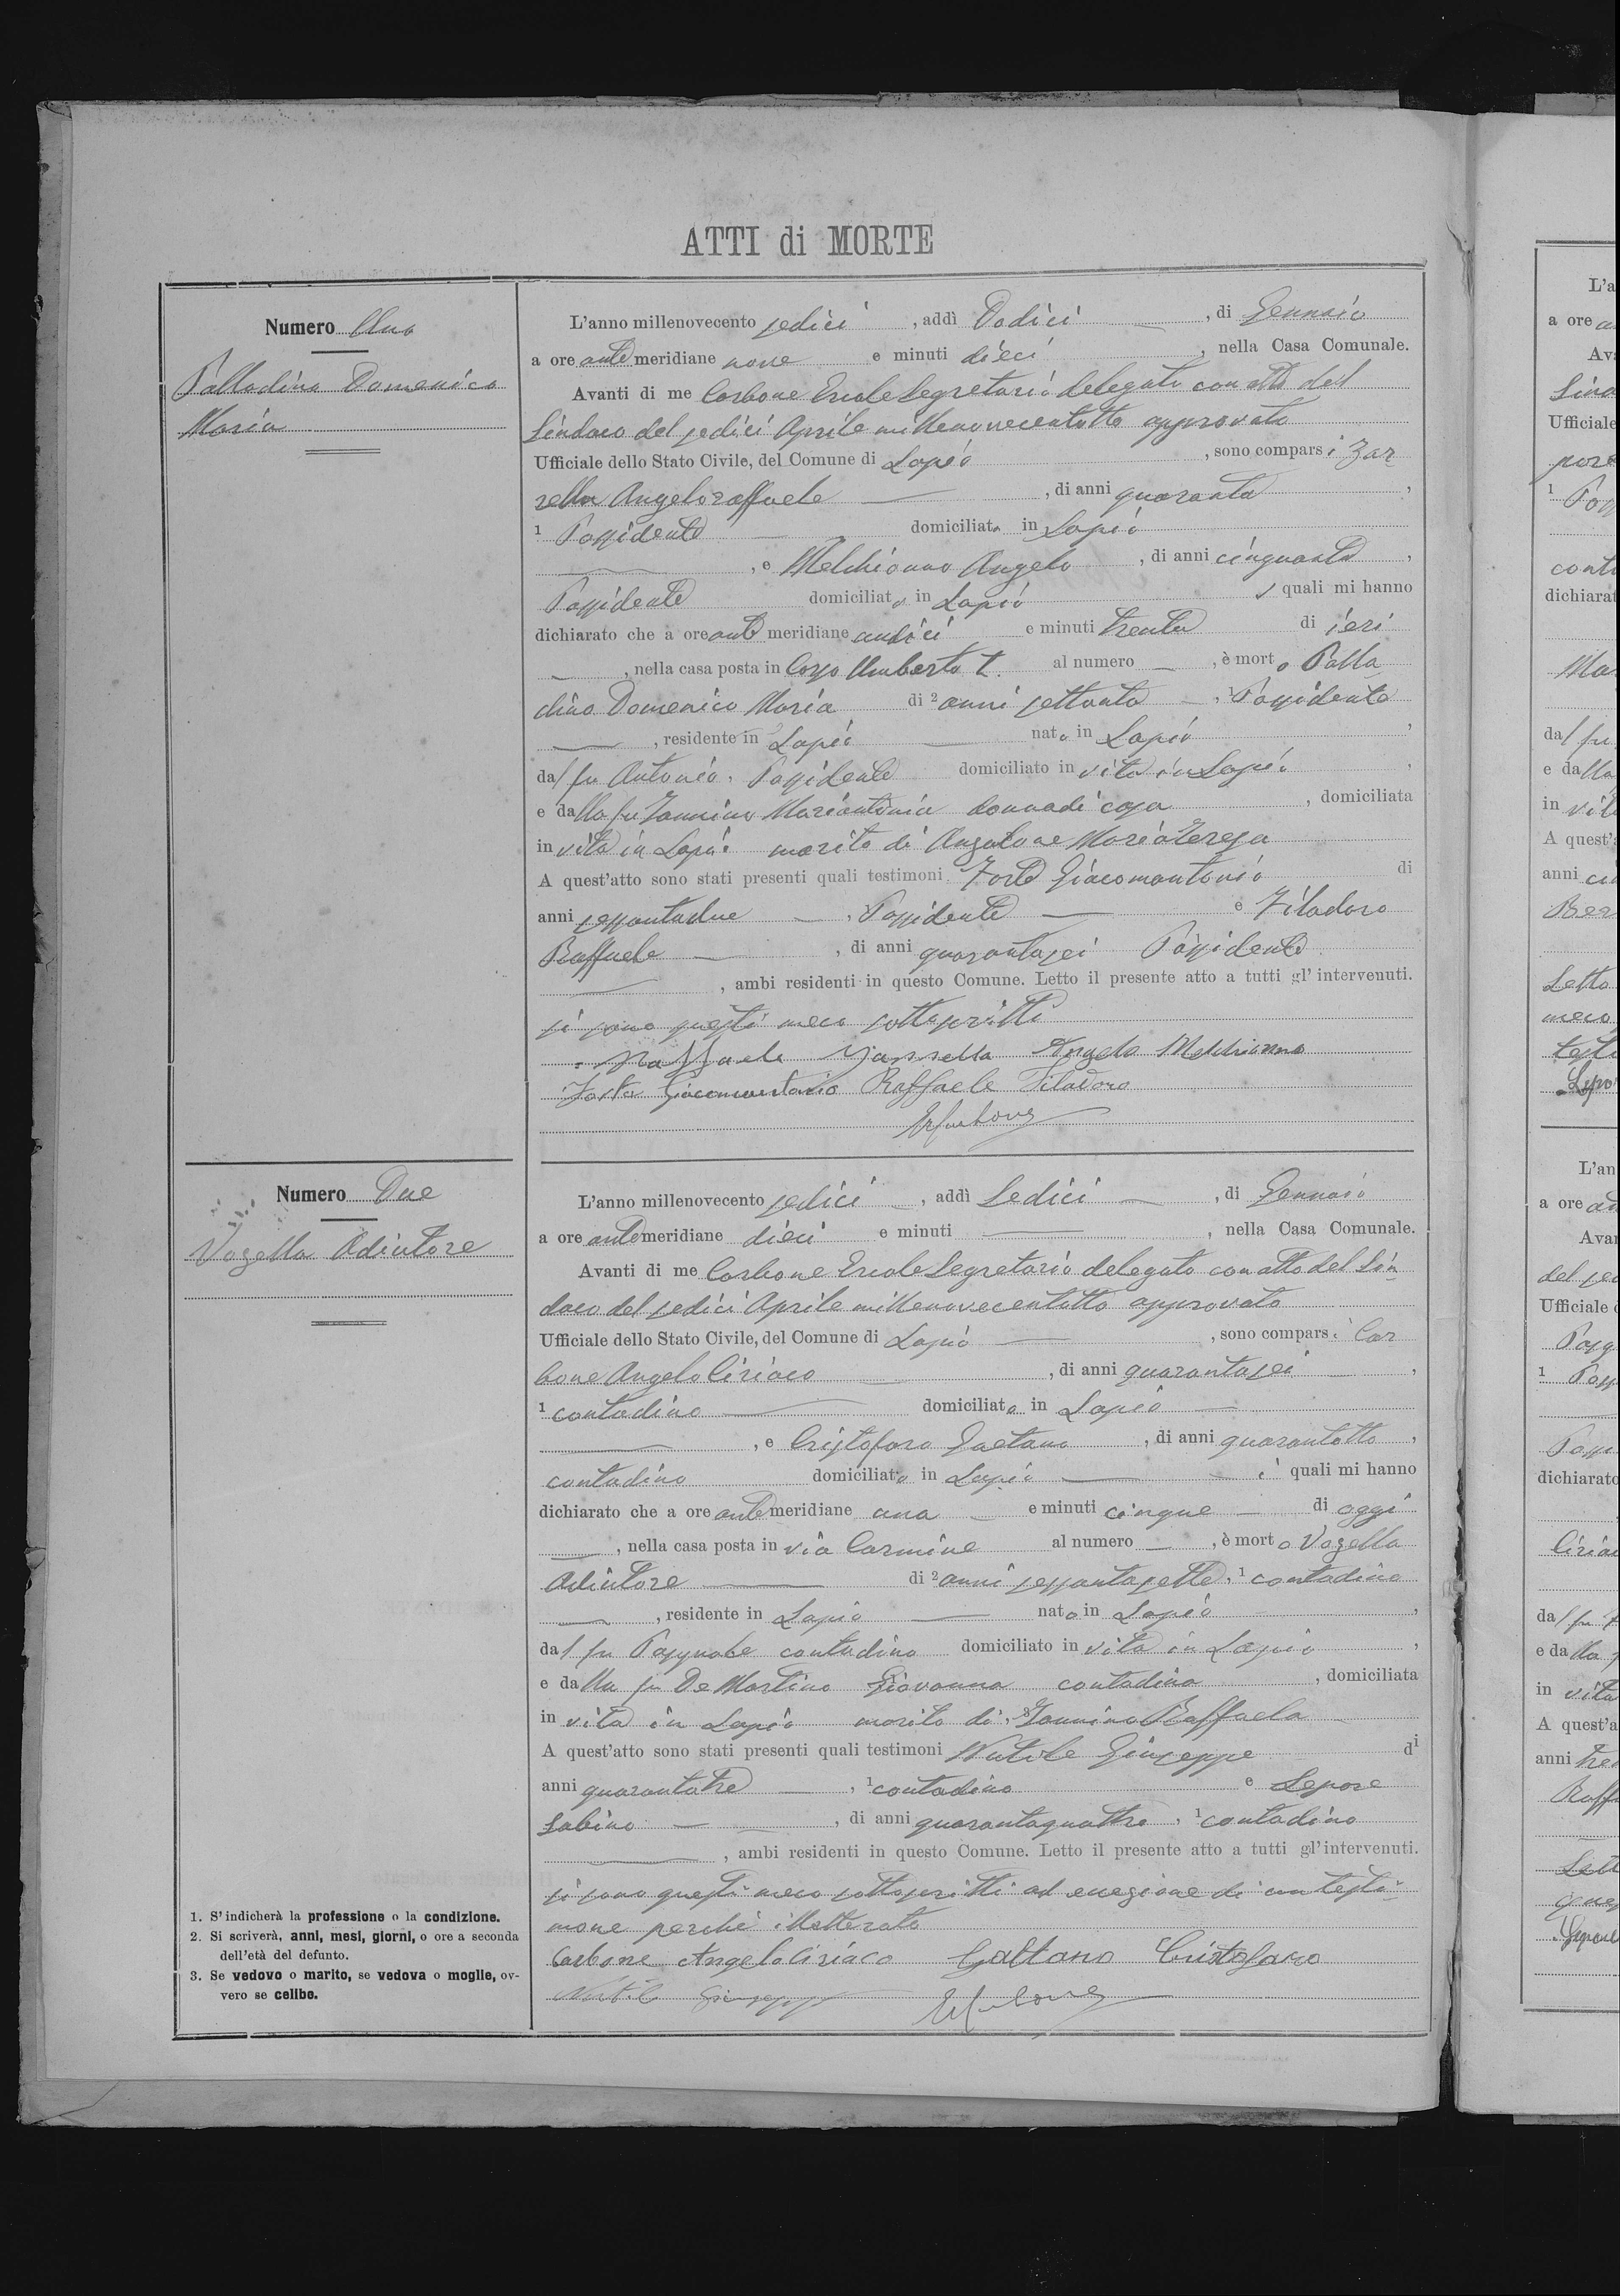 ATTI di MORTE
Numero Uno
Palladino Domenico
Maria
L'anno millenovecento sedici, addì Dodici, di Gennaio
a ore ante meridiane nove e minuti dieci, nella Casa Comunale.
Avanti di me Carbone Ercole Segretario delegato con atto del
Sindaco del sedici Aprile millenovecentotto approvato
Ufficiale dello Stato Civile, del Comune di Lapio, sono comparsi Zar
rella Angeloraffaele, di anni quaranta,
1 Possidente domiciliato in Lapio
, e Melchionno Angelo, di anni cinquanta,
Possidente domiciliato in Lapio i quali mi hanno
dichiarato che a ore ante meridiane undici e minuti trenta di ieri
, nella casa posta in Corso Umberto I. al numero , è morto Palla
dino Domenico Maria di 2 anni settanta, 1 Possidente
, residente in Lapio nato in Lapio,
dal fu Antonio, Possidente domiciliato in vita in Lapio,
e dalla fu Iannino Mariantonia donna di casa, domiciliata
in vita in Lapio marito di Anzalone Maria Teresa
A quest'atto sono stati presenti quali testimoni Forte Giacomantonio di
anni sessantadue, Possidente e Filadoro
Raffaele, di anni quarantasei Possidente
, ambi residenti in questo Comune. Letto il presente atto a tutti gl'intervenuti.
si sono questi meco sottoscritti
Raffaele Zarrella Angelo Melchionno
Forte Giacomantonio Raffaele Filadoro
ErCarbone
Numero Due
Vozella Adiutore
L'anno millenovecento sedici, addì Sedici, di Gennaio
a ore antemeridiane dieci e minuti , nella Casa Comunale.
Avanti di me Carbone Ercole Segretario delegato con atto del Sin
daco del sedici Aprile millenovecentotto approvato
Ufficiale dello Stato Civile, del Comune di Lapio, sono comparsi Car
bone Angelo Ciriaco, di anni quarantasei,
1 contadino domiciliato in Lapio
, e Cristofaro Gaetano, di anni quarantotto,
contadino domiciliato in Lapio i quali mi hanno
dichiarato che a ore antemeridiane una e minuti cinque di oggi
, nella casa posta in via Carmine al numero , è morto Vozella
Adiutore di 2 anni sessantasette, 1 contadino
, residente in Lapio nato in Lapio,
dal fu Pasquale contadino domiciliato in vita in Lapio,
e dalla fu De Martino Giovanna contadina, domiciliata
in vita in Lapio marito di Iannino Raffaela
A quest'atto sono stati presenti quali testimoni Nutile Giuseppe di
anni quarantatre, 1 contadino e Lepore
Sabino, di anni quarantaquattro, 1 contadino
, ambi residenti in questo Comune. Letto il presente atto a tutti gl'intervenuti.
si sono questi meco sottoscritti ad eccezione di un testi
mone perché illetterato
Carbone Angelo Ciriaco Gaetano Cristofaro
Nutile Giuseppe ErCarbone
1. S'indicherà la professione o la condizione.
2. Si scriverà, anni, mesi, giorni, o ore a seconda
dell'età del defunto.
3. Se vedovo o marito, se vedova o moglie, ov-
vero se celibe.